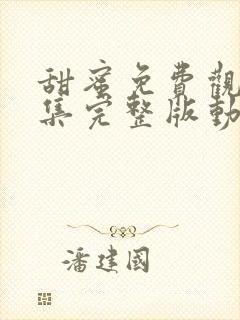 甜蜜免費觀
集完整版動
潘建國